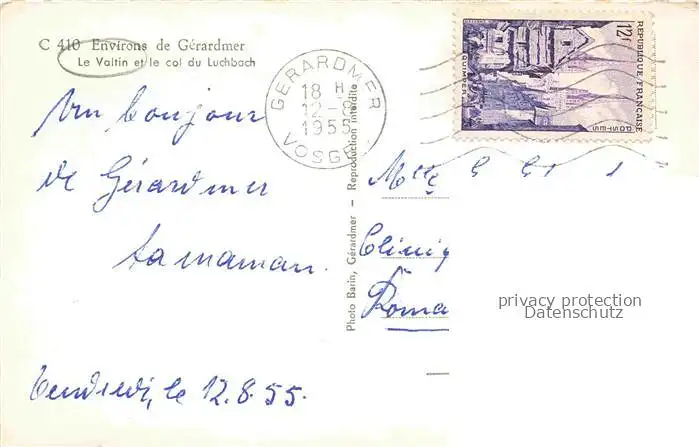 C 410 Environs de Gérardmer
Le Valtin et le col du Luchbach
Un bonjour
de Gérardmer
ta maman.
Vendredi, le 12.8.55.
Photo Barin, Gérardmer – Reproduction interdite
GERARDMER
18 H
12-8
1955
VOSGES
12F
REPUBLIQUE FRANÇAISE
POSTES
QUIMPER
Melle
Cliniq
Roma
privacy protection
Datenschutz